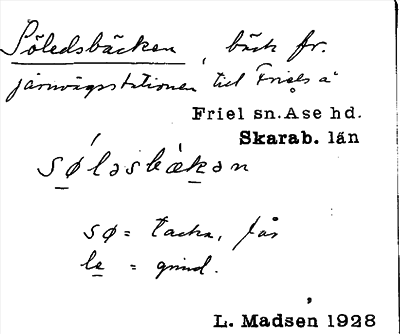 Söledsbäcken, bäck fr.
järnvägsstationen till Friels å
Friel sn. Ase hd.
Skarab. län
sø´ləsbækən
sø = tacka, får
le = grind.
L. Madsen 1928